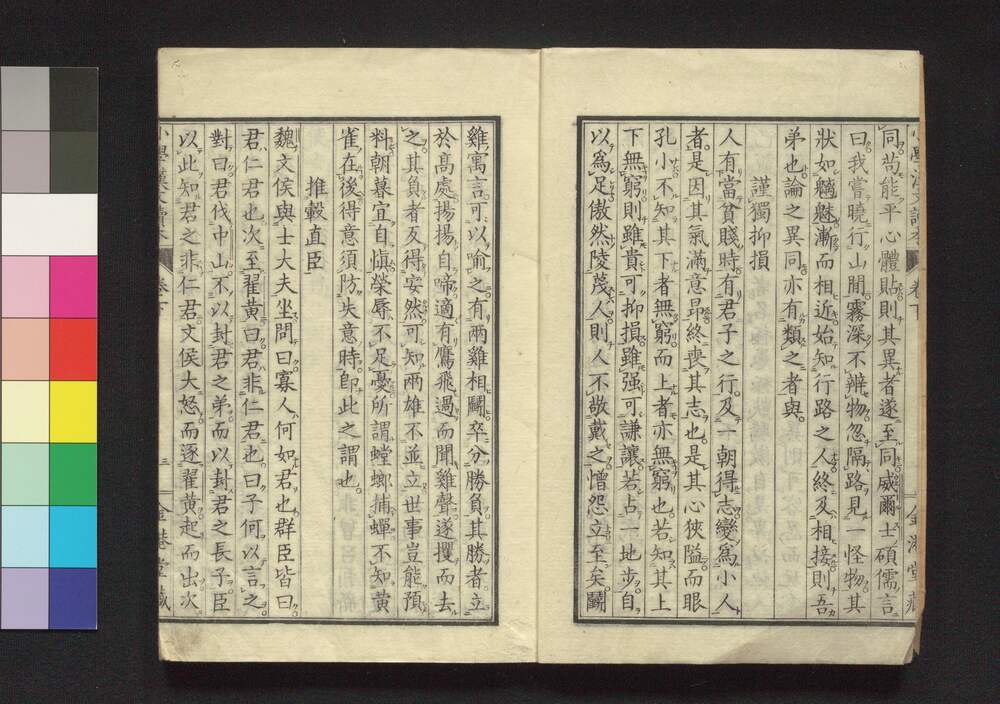 同苟能平心體貼則其異者遂至同威爾士碩儒言
曰我嘗曉行山間霧深不辨物忽隔路見一怪物其
狀如魑魅漸而相近始知行路之人終及相接則吾
弟也論之異同亦有類之者與
謹獨抑損
人有當貧賤時有君子之行及一朝得志變爲小人
者是因其氣滿意昻終喪其志也是其心狹隘而眼
孔小不知其下者無窮而上者亦無窮也若知其上
下無窮則雖貴可抑損雖强可謙讓若占地步自
以爲足傲然陵蔑人則人不敬戴之憎怨立至矣鬭
雞寓言可以喻之有兩雞相鬭卒分勝負其勝者立
於高處揚揚自啼適有鷹飛過而聞雞聲遂攫而去
之其負者反得安然可知兩雄不並立世事豈能預
料朝暮宜自愼榮辱不足憂所謂螳螂捕蟬不知黄
雀在後得意須防失意時卽此之謂也
推轂直臣
魏文侯與士大夫坐問曰寡人何如君也群臣皆曰
君仁君也次至翟黄曰君非仁君也曰子何以言之
對曰君伐中山不以封君之弟而以封君之長子臣
以此知君之非仁君文侯大怒而逐翟黄起而出次
小學漢文讀本 卷下 三 金港堂藏